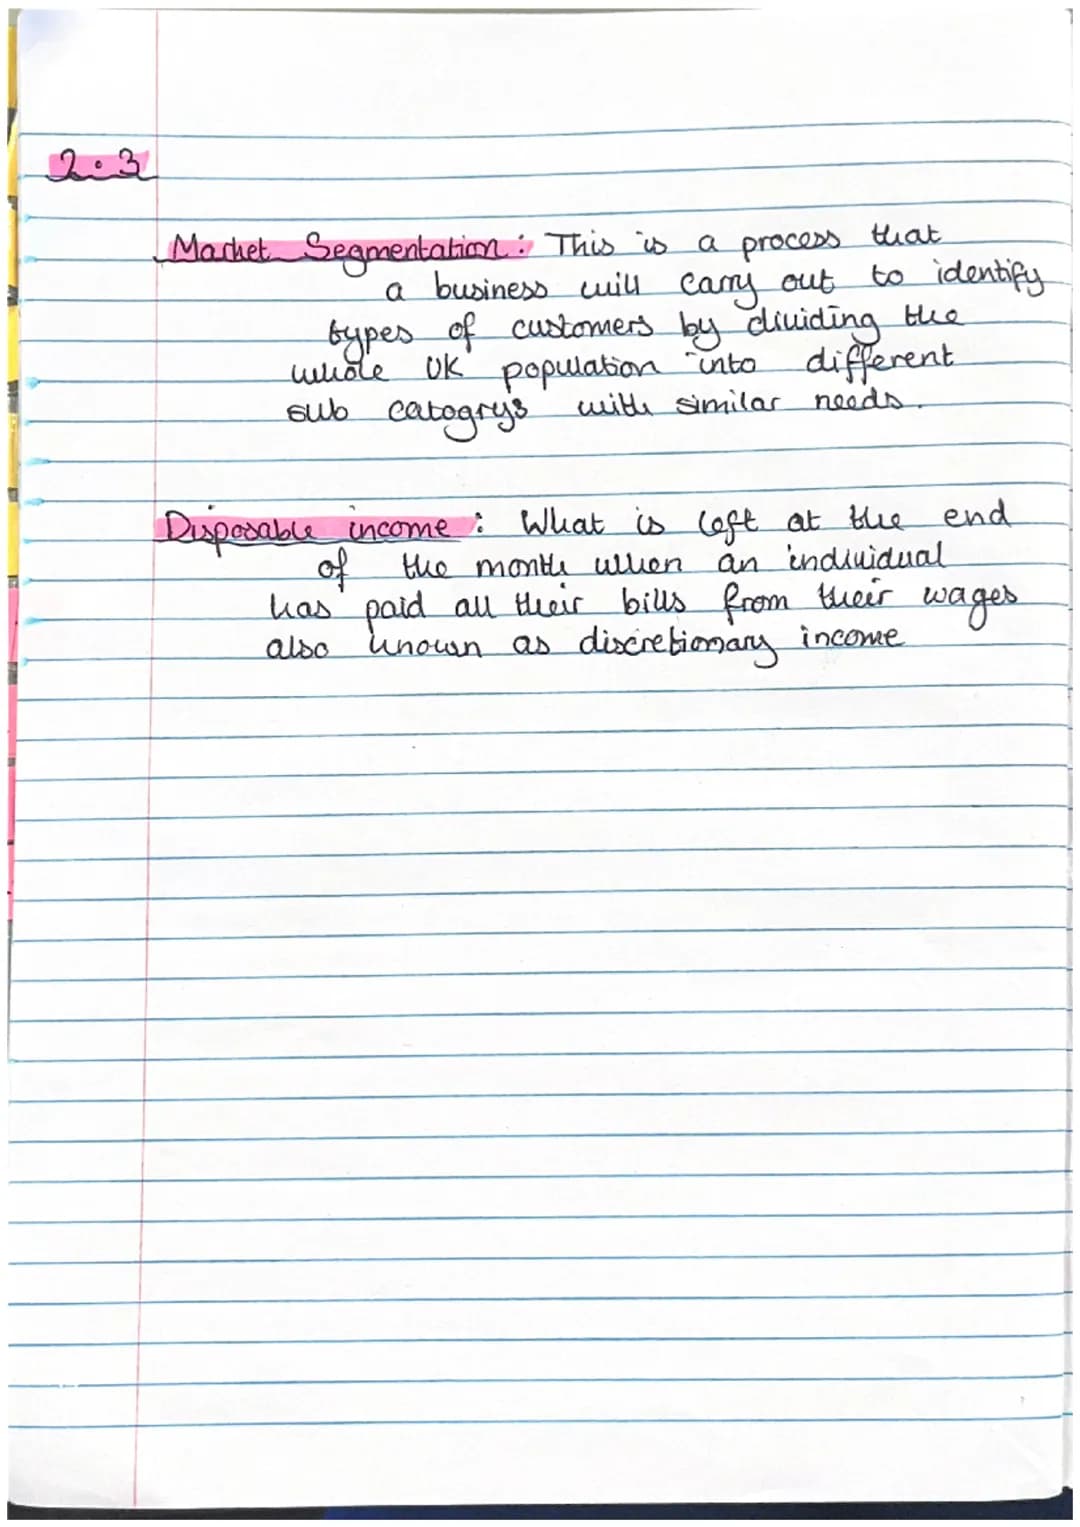 2.3
Market Segmentation: This is a process that
a business will carry out to identify
types of customers by dividing the
whole UK population into different
sub catogrys with similar needs.
Disposable income: What is left at the end
of the month when an individual
has paid all their bills from their wages
also known as discretionary income